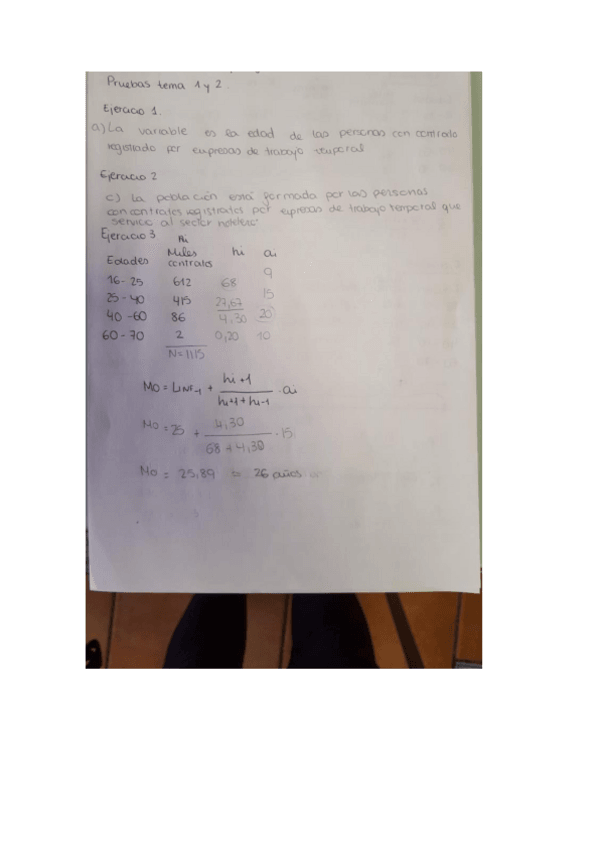 Pruebas tema 1 y 2.
Ejercicio 1.
a) La variable es la edad de las personas con contrato
registrado por empresas de trabajo temporal
Ejercicio 2
c) La población está formada por las personas
con contratos registrados por empresas de trabajo temporal que
servicio al sector
Ejercicio 3
Edades Miles contratos hi ai
16-25 612 68 9
25-40 415 27,67 15
40-60 86 4,30 20
60-70 2 0,20 10
N=1115
Mo = LINF-1 + hi+1 / hi+1 + hi-1 · ai
Mo = 25 + 4,30 / 68 + 4,30 · 15
Mo = 25,89 = 26 años